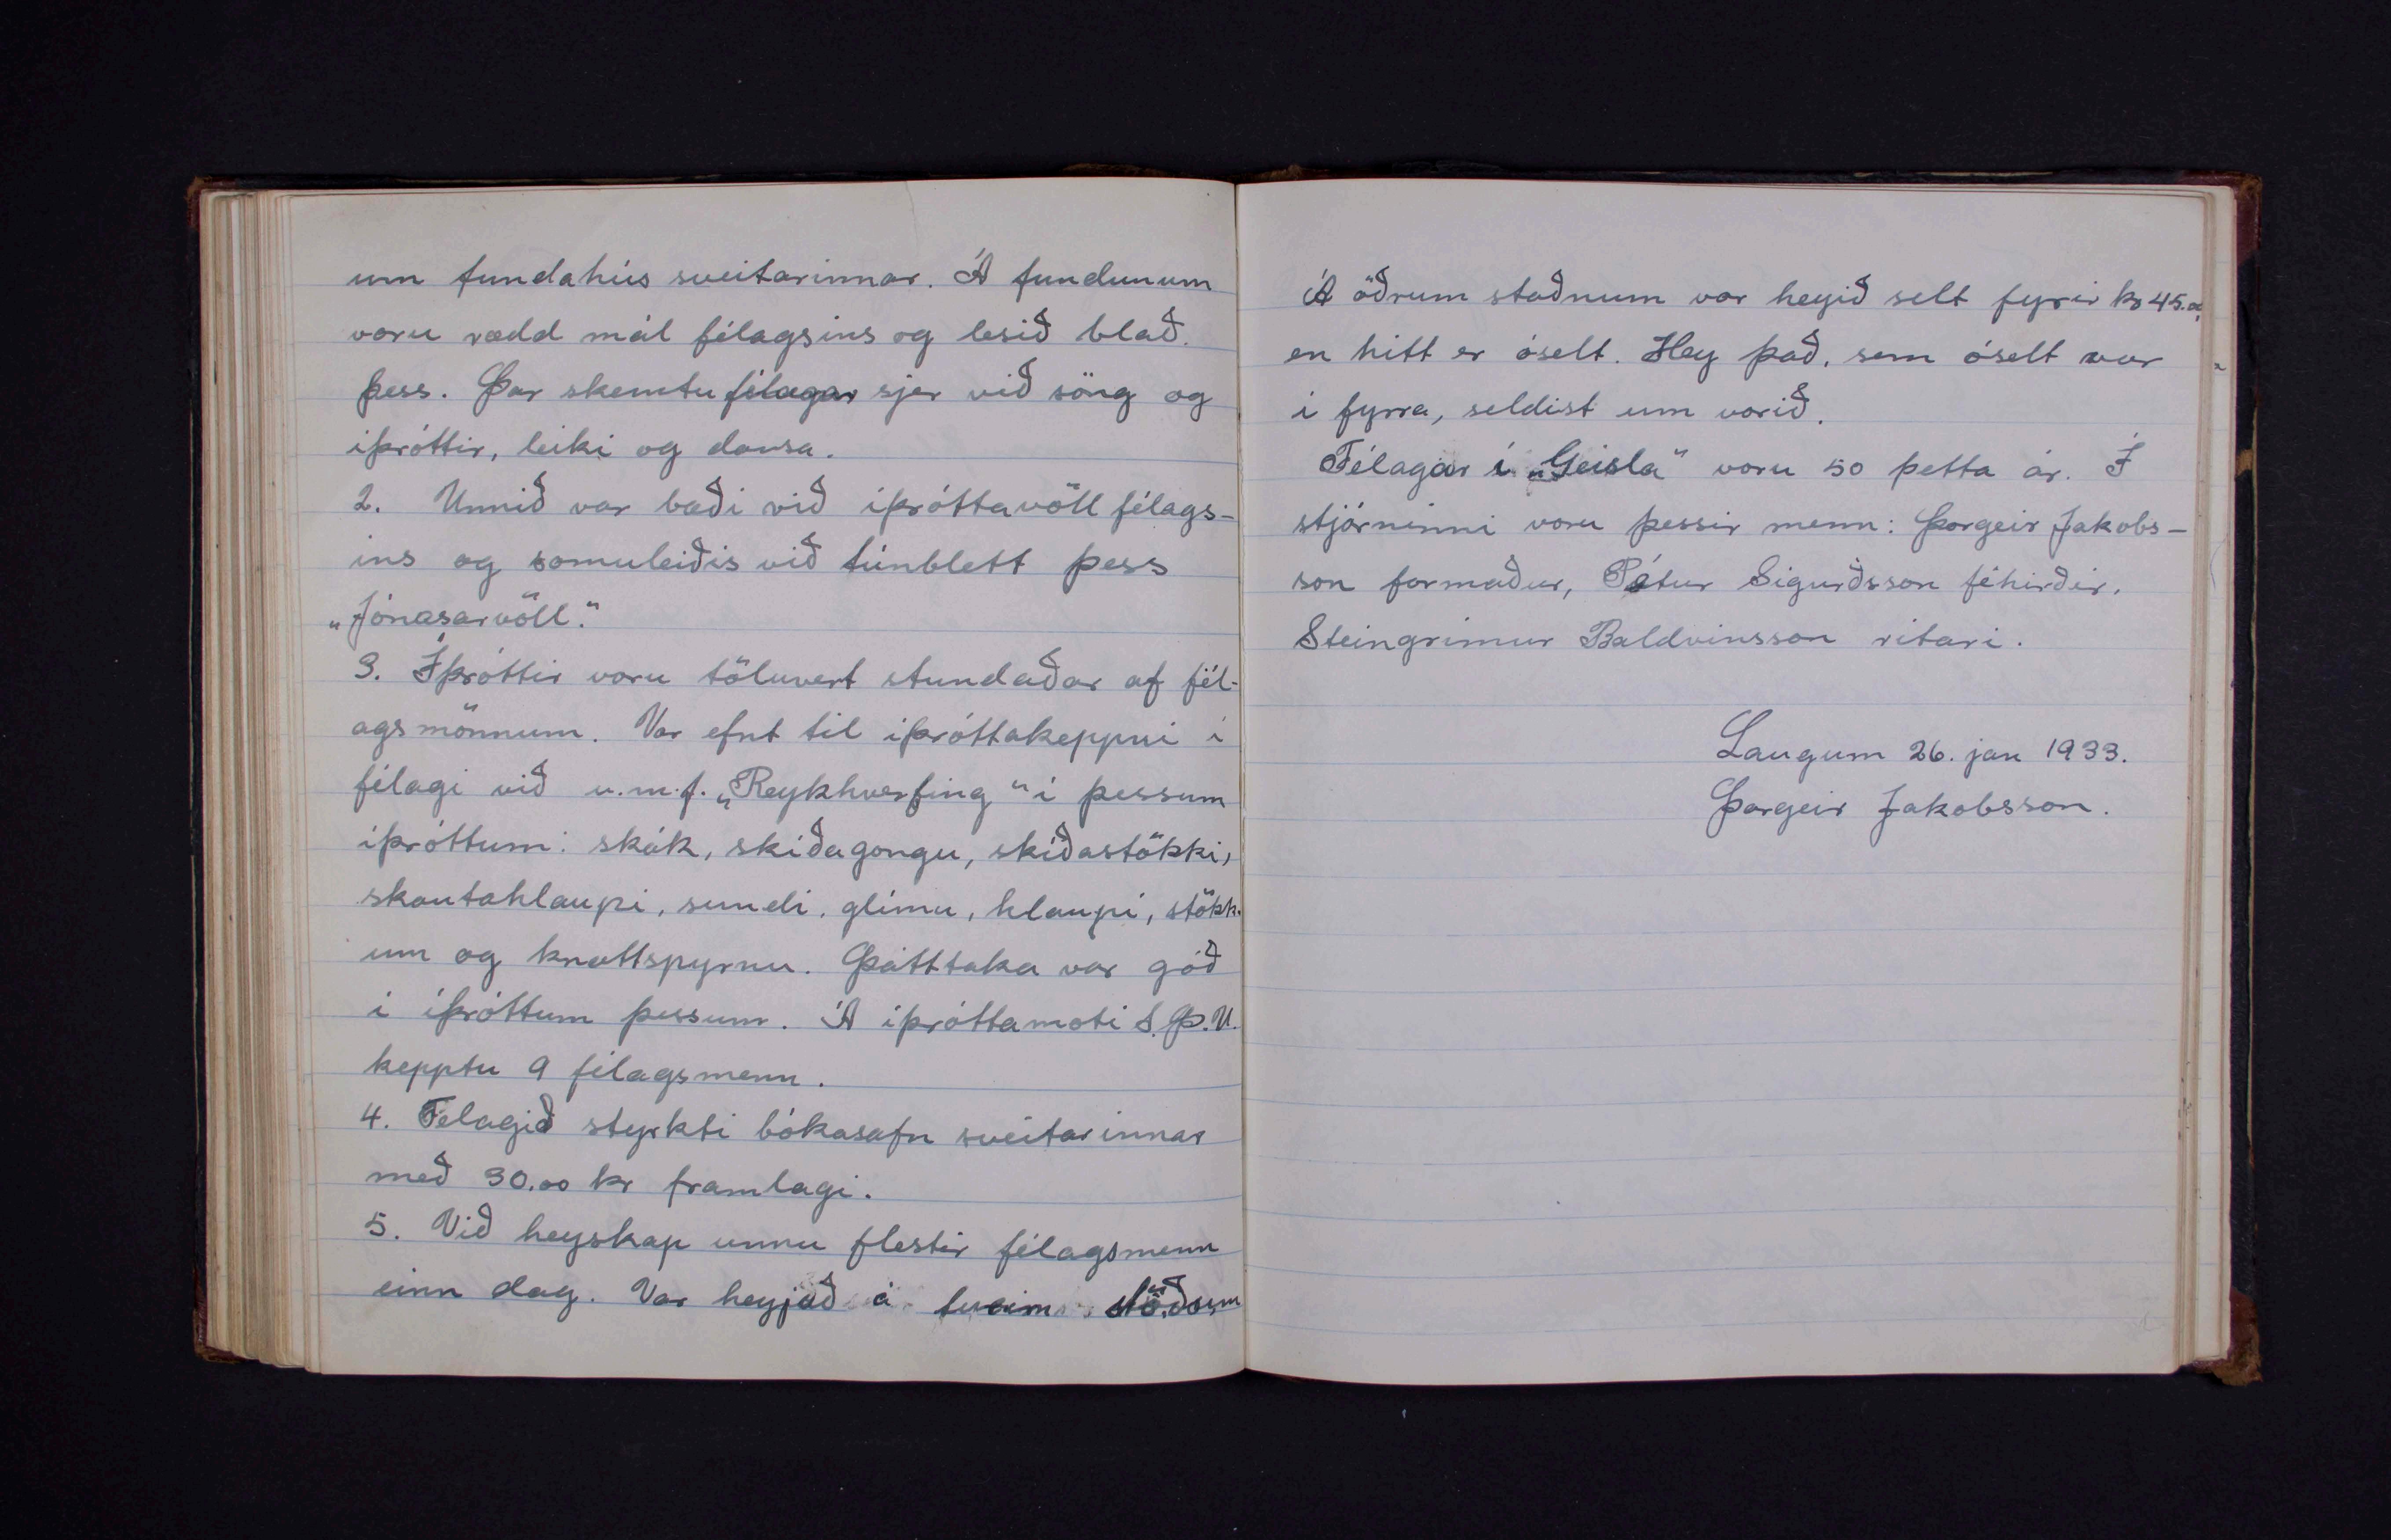 um fundahús sveitarinnar. Á fundunum
voru rædd mál félagsins og lesið blað.
þess. Þar skemtu félagar sjer við söng og
iþróttir, leiki og dansa.
2. Unnið var bæði við íþróttavöll félags-
ins og somuleiðis við túnblett þess
„Jónasarvöll."
3. Íþróttir voru töluvert stundaðar af fél-
agsmönnum. Var efnt til iþróttakeppni i
félagi við u.m.f. „Reykhverfing" í þessum
íþróttum: skák, skíðagongu, skíðastökki,
skautahlaupi, sundi, glímu, hlaupi, stökk-
um og knattspyrnu. Þátttaka var góð
i íþróttum þessum. Á íþróttamoti S.Þ.U.
kepptu 9 félagsmenn.
4. Félagið styrkti bókasafn sveitarinnar
með 30.00 kr framlagi.
5. Við heyskap unnu flestir félagsmenn
einn dag. Var heyjað á tveim stöðum
Á öðrum staðnum var heyið selt fyrir kr 45.00
en hitt er óselt. Hey það, sem óselt var
i fyrra, seldist um vorið.
Félagar í „Geisla" voru 50 þetta ár. Í
stjórninni voru þessir menn: Þorgeir Jakobs-
son formaður, Pétur Sigurðsson féhirðir,
Steingrimur Baldvinsson ritari.
Laugum 26. jan 1933.
Þorgeir Jakobsson.